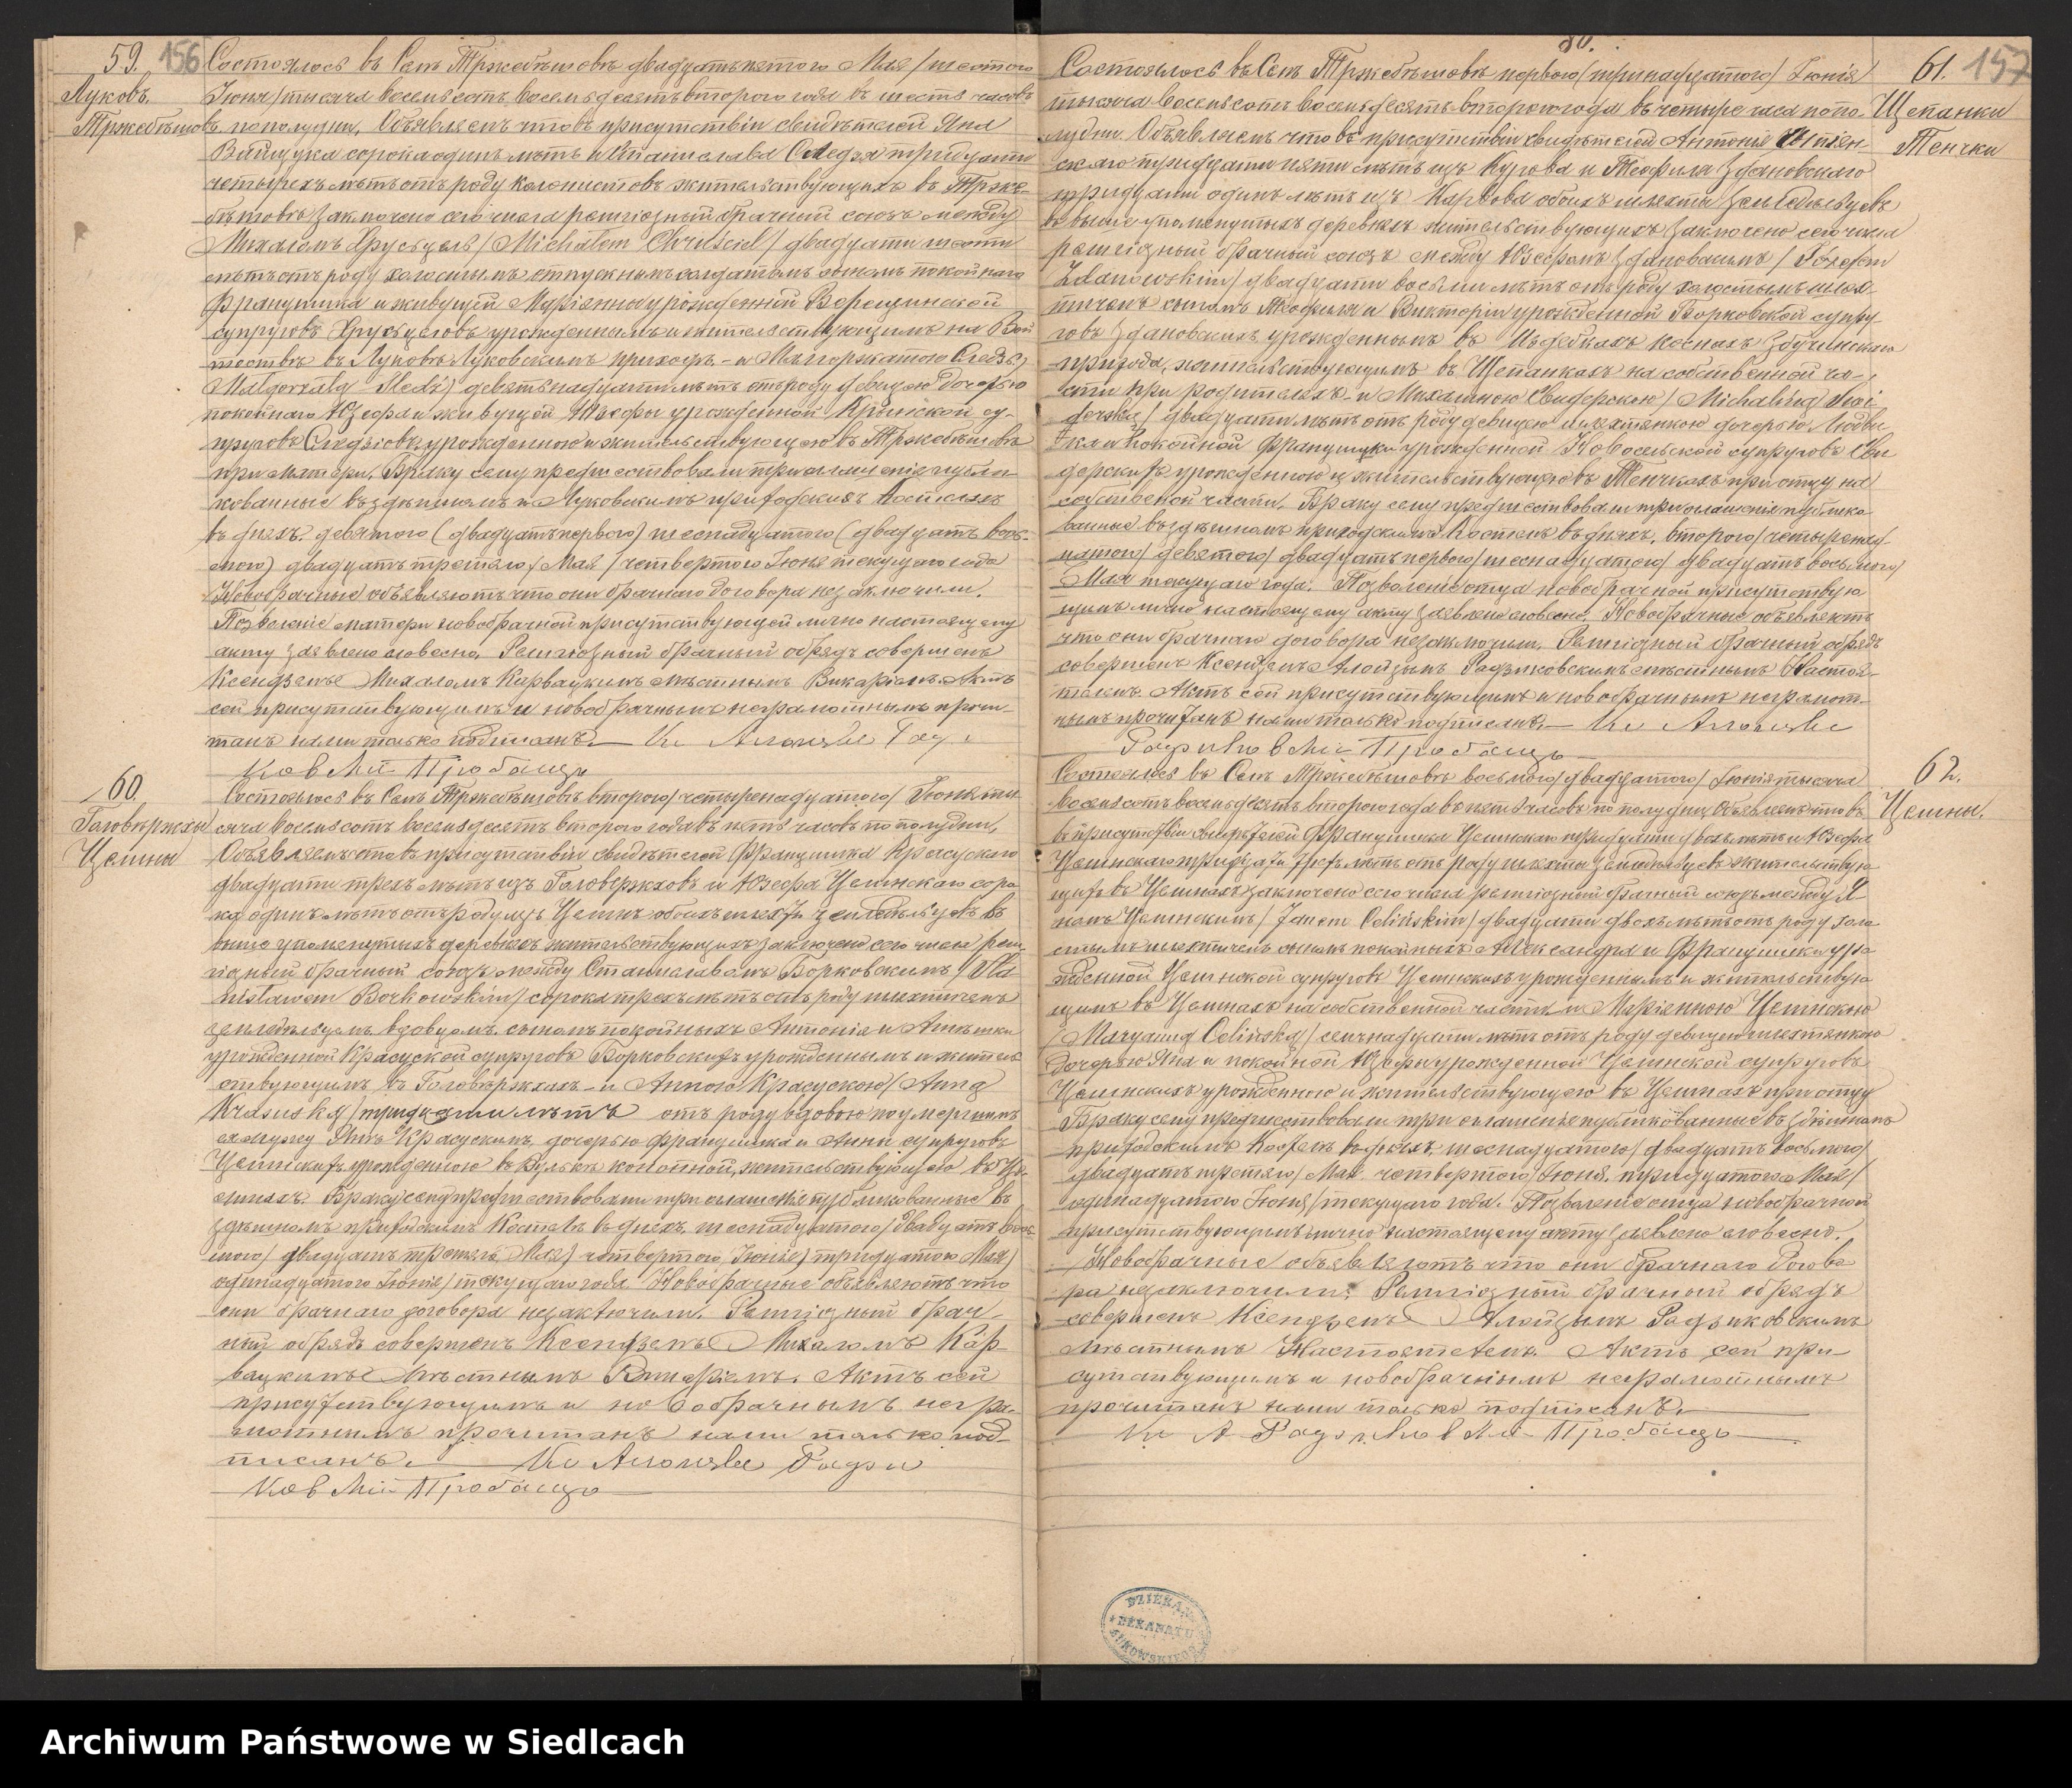 59. 156
Луковъ.
Тржебѣшовъ
Состоялось въ Селѣ Тржебѣшовѣ двадцать пятого Мая / шестого
Іюня / тысяча восемьсотъ восемьдесятъ второго года въ шесть часовъ
по полудни. Объявляемъ что въ присутствіи свидѣтелей Яна
сорока одинъ лѣтъ и Станислава Следзя тридцати
четырехъ лѣтъ отъ роду колонистовъ жительствующихъ въ Тржe-
бѣшовѣ заключено сего числа религіозный брачный союзъ между
Михаломъ Хрусьцель / Michałem Chruściel / двадцати шести
лѣтъ отъ роду холостымъ отпускнымъ солдатомъ сыномъ покойнаго
Францишка и живущей Маріанны урожденной
супруговъ Хрусьцелевъ урожденнымъ и жительствующимъ на
въ Луковѣ Луковскимъ приходѣ - и Малгоржатою Следзь /
Małgorzatą Śledź / девятьнадцати лѣтъ отъ роду девицею дочерью
покойнаго Юзефа и живущей Юзефы урожденной су-
пруговъ Следзіовъ, урожденною и жительствующею въ Тржебѣшовѣ
при матери. Браку сему предшествовали три оглашенія публи-
кованные въ здѣшнемъ и Луковскимъ приходскихъ Костелахъ
въ дняхъ: девятого (двадцать первого) шеснадцатого (двадцать вось-
мого) двадцать третяго / Мая / четвертого Іюня текущаго года
Новобрачные объявляютъ что они брачнаго договора не заключили.
Позволеніе матери новобрачной присутствующей лично настоящему
акту заявлено словесно. Религіозный брачный обрядъ совершенъ
Ксендземъ Михаломъ Карвацкимъ мѣстнымъ Викаріемъ. Актъ
сей присутствующимъ и новобрачнымъ неграмотнымъ прочи-
танъ нами только подписанъ. — Кс Алоизы Радзи
ковскій Пробощъ
60.
Головѣржхи
Целины
Состоялось въ Селѣ Тржебѣшовѣ второго / четыренадцатого / Іюня ты-
сяча восемьсотъ восемьдесятъ второго года въ пять часовъ по полудни,
Объявляемъ что въ присутствіи свидѣтелей Францишка Красуского
двадцати трехъ лѣтъ изъ Головержховъ и Юзефа Целинскаго соро-
ка одинъ лѣтъ отъ роду изъ Целинъ обоихъ шляхты земледѣльцевъ въ
выше упомянутыхъ деревняхъ жительствующихъ заключено сего числа рели-
гіозный брачный союзъ между Станиславомъ Борковскимъ / Sta
nisławem Borkowskim / сорока трехъ лѣтъ отъ роду шляхтичемъ
земледѣльцемъ вдовцомъ сыномъ покойныхъ Антонія и Агнѣшки
урожденной Красуской супруговъ Борковскихъ урожденнымъ и житель-
ствующимъ въ Головѣржхахъ - и Анною Красускою / Anną
Krasuską / тридцати лѣтъ отъ роду вдовою по умершимъ
ея мужу Янѣ Красускимъ, дочерью Францишка и Анны супруговъ
Целинскихъ, урожденною въ Вулькѣ конопной, жительствующею въ Це-
линахъ. Браку сему предшествовали три оглашенія публикованные въ
здѣшнемъ приходскимъ Костелѣ въ дняхъ: шеснадцатого / двадцать вось-
мого / двадцать третяго Мая / четвертого Іюня / тридцатого Мая /
одинадцатого Іюня / текущаго года. Новобрачные объявляютъ что
они брачнаго договора не заключили. Религіозный брач-
ный обрядъ совершенъ Ксендземъ Михаломъ Кар-
вацкимъ мѣстнымъ Викаріемъ. Актъ сей
присутствующимъ и новобрачнымъ негра-
мотнымъ прочитанъ нами только под-
писанъ. — Кс Алоизы Радзи
ковскій Пробощъ
61. 157
Щепанки
Тенчки
Состоялось въ Селѣ Тржебѣшовѣ первого / тринадцатого / Іюнія
тысяча восемьсотъ восемьдесятъ второго года въ четыре часа по по-
лудни Объявляемъ что въ присутствіи свидѣтелей Антонія
скаго тридцати пяти лѣтъ изъ и Теофиля Здановскаго
тридцати одинъ лѣтъ изъ Карвова обоихъ шляхты земледѣльцевъ
въ выше упомянутыхъ деревняхъ жительствующихъ заключено сего числа
религіозный брачный союзъ между Юзефомъ Здановскимъ / Józefem
Zdanowskim / двадцати восьми лѣтъ отъ роду холостымъ шлях-
тичемъ сыномъ Теофиля и Викторіи урожденной Борковской супру-
говъ Здановскихъ, урожденнымъ въ Збучинскаго
прихода, жительствующимъ въ Щепанкахъ на собственной ча-
сти при родителяхъ - и Михалиною Свидерскою / Michaliną Świ-
derską / двадцати лѣтъ отъ роду девицею шляхтянкою дочерью Людви-
ка и покойной Францишки урожденной Новосельской супруговъ Сви-
дерскихъ урожденною и жительствующею въ Тенчкахъ при отцу на
собственной части. Браку сему предшествовали три оглашенія публико-
ванные въ здѣшнемъ приходскимъ Костелѣ въ дняхъ: второго / четыренад-
цатого / девятого / двадцать первого / шеснадцатого / двадцать восьмого /
Мая текущаго года. Позволеніе отца новобрачной присутствую-
щимъ лично настоящему акту заявлено словесно. Новобрачные объявляютъ
что они брачнаго договора не заключили. Религіозный брачный обрядъ
совершенъ Ксендземъ Алоизымъ Радзиковскимъ мѣстнымъ Настоя-
телемъ. Актъ сей присутствующимъ и новобрачнымъ неграмот-
нымъ прочитанъ нами только подписанъ. — Кс Алоизы
Радзиковскій Пробощъ
62.
Целины.
Состоялось въ Селѣ Тржебѣшовѣ восьмого / двадцатого / Іюнія тысяча
восемьсотъ восемьдесятъ второго года въ пять часовъ по полудни, Объявляемъ что въ
въ присутствіи свидѣтелей Францишка Целинскаго тридцати двохъ лѣтъ и Юзефа
Целинскаго тридцати трехъ лѣтъ отъ роду шляхты земледѣльцевъ жительствую-
щихъ въ Целинахъ заключено сего числа религіозный брачный союзъ между Я-
номъ Целинскимъ / Janem Celińskim / двадцати двохъ лѣтъ отъ роду холо-
стымъ шляхтичемъ сыномъ покойныхъ Александра и Францишки уро-
жденной Целинской супруговъ Целинскихъ урожденнымъ и жительствую-
щимъ въ Целинахъ на собственной части и Маріанною Целинскою
/ Maryanną Celińską / семьнадцати лѣтъ отъ роду девицею шляхтянкою
дочерью Яна и покойной Юзефы урожденной Целинской супруговъ
Целинскихъ урожденною и жительствующею въ Целинахъ при отцу
Браку сему предшествовали три оглашенія публикованные въ здѣшнемъ
приходскимъ Костелѣ въ дняхъ: шеснадцатого / двадцать восьмого /
двадцать третяго / Мая четвертого / Іюня, тридцатого Мая /
одинадцатого Іюня / текущаго года. Позволеніе отца новобрачной
присутствующимъ лично настоящему акту заявлено словесно.
Новобрачные объявляютъ что они брачнаго догово-
ра не заключили. Религіозный брачный обрядъ
совершенъ Ксендземъ Алоизымъ Радзиковскимъ
мѣстнымъ Настоятелемъ. Актъ сей при-
сутствующимъ и новобрачнымъ неграмотнымъ
прочитанъ нами только подписанъ.
Кс А Радзиковскій Пробощъ
DZIEKAN
DEKANATU
ŁUKOWSKIEGO
Archiwum Państwowe w Siedlcach